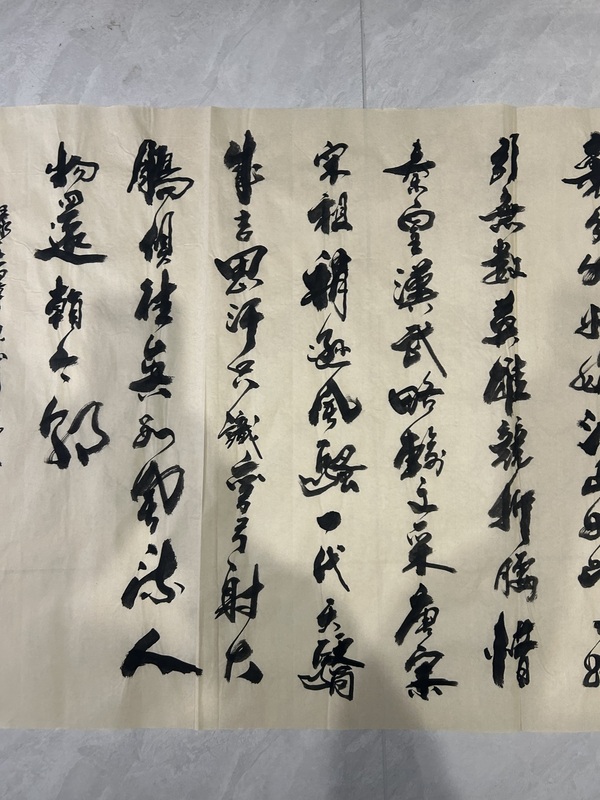 分外妖嬈江山如此多
引無數英雄競折腰惜
秦皇漢武略輸文采唐宗
宋祖稍遜風騷一代天驕
成吉思汗只識彎弓射大
鵰俱往矣數風流人
物還看今朝